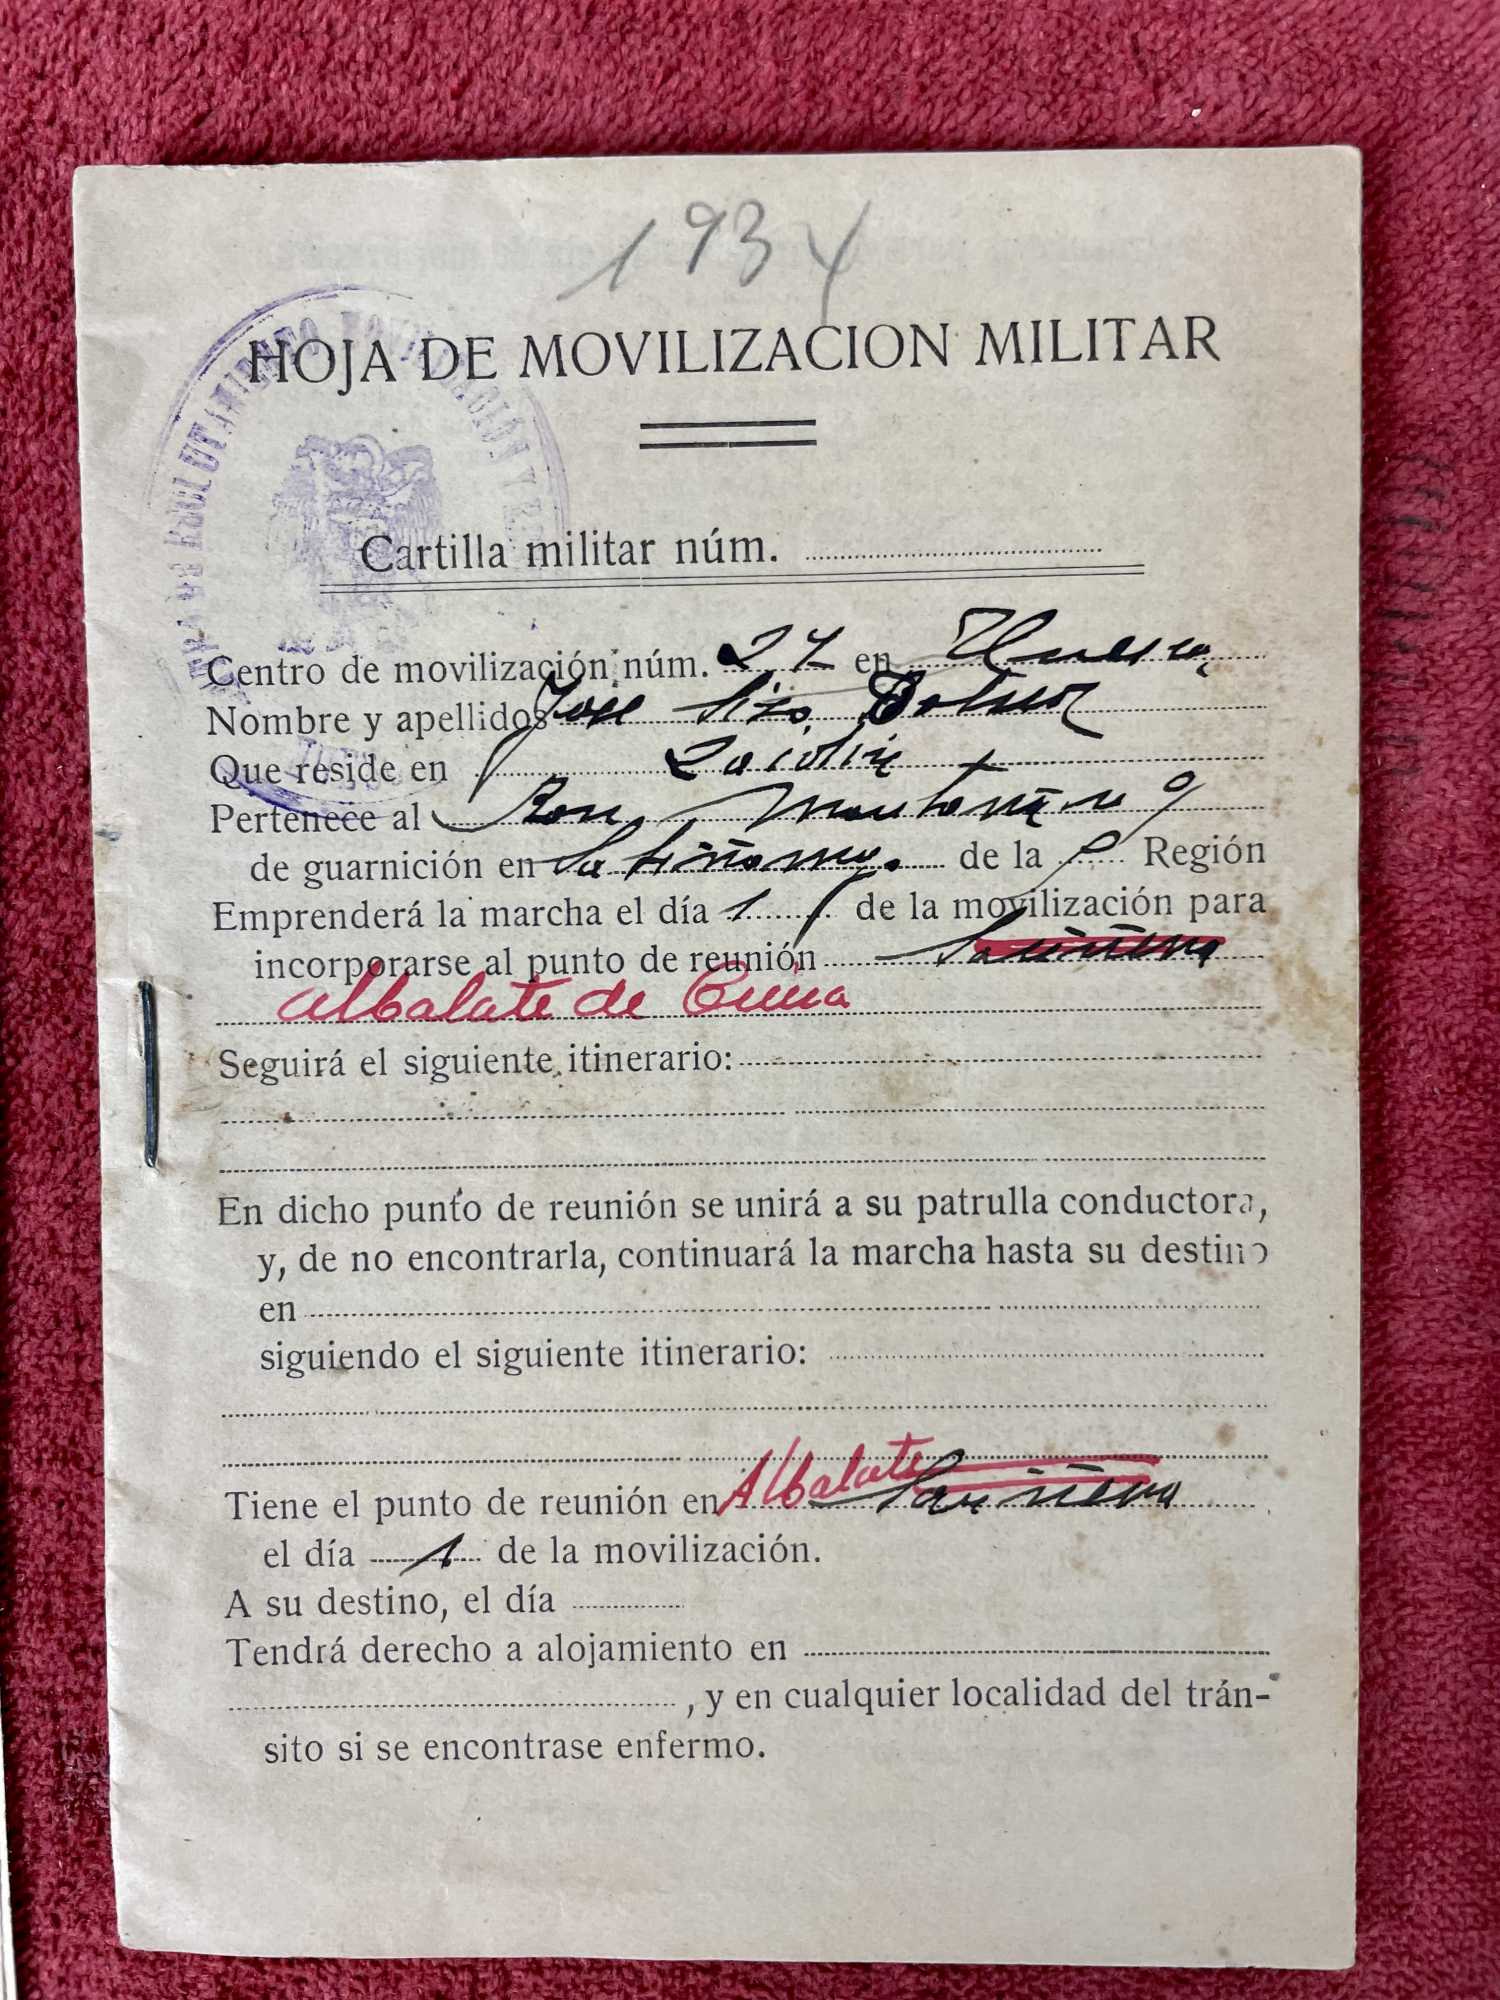 1934
HOJA DE MOVILIZACION MILITAR
Cartilla militar núm.
Centro de movilización núm. 27 en Huesca
Nombre y apellidos José
Que reside en
Pertenece al
de guarnición en de la Región
Emprenderá la marcha el día 1 de la movilización para
incorporarse al punto de reunión Sariñena
Albalate de Cinca
Seguirá el siguiente itinerario:
En dicho punto de reunión se unirá a su patrulla conductora,
y, de no encontrarla, continuará la marcha hasta su destino
en
siguiendo el siguiente itinerario:
Tiene el punto de reunión en Albalate Sariñena
el día 1 de la movilización.
A su destino, el día
Tendrá derecho a alojamiento en
, y en cualquier localidad del trán-
sito si se encontrase enfermo.